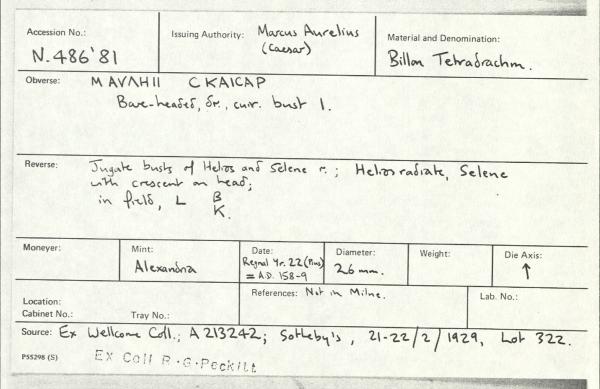 Accession No.: Issuing Authority: Marcus Aurelius Material and Denomination:
N.486'81 (Caesar) Billon Tetradrachm.
Obverse: M AVΛHII CKAICAP
Bare-headed, dr., cuir. bust l.
Reverse: Jugate busts of Helios and Selene r.; Helios radiate, Selene
with crescent on head;
in field, L B
K.
Moneyer: Mint: Date: Diameter: Weight: Die Axis:
Alexandria Regnal Yr. 22 (Pius) 26 mm. ↑
= A.D. 158-9
Location: References: Not in Milne. Lab. No.:
Cabinet No.: Tray No.:
Source: Ex Wellcome Coll.; A 213242; Sotheby's, 21-22/2/1929, Lot 322.
PS5298 (S) Ex Coll R.G.Peckitt